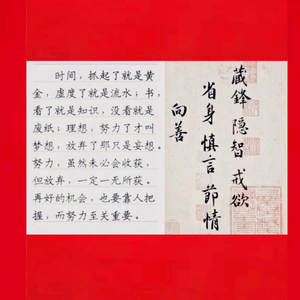 时间，抓起了就是黄
金，虚度了就是流水；书，
看了就是知识，没看就是
废纸；理想，努力了才叫
梦想，放弃了那只是妄想。
努力，虽然未必会收获，
但放弃，一定一无所获。
再好的机会，也要靠人把
握，而努力至关重要。
藏鋒 隐智 戒欲
省身 慎言 節情
向善